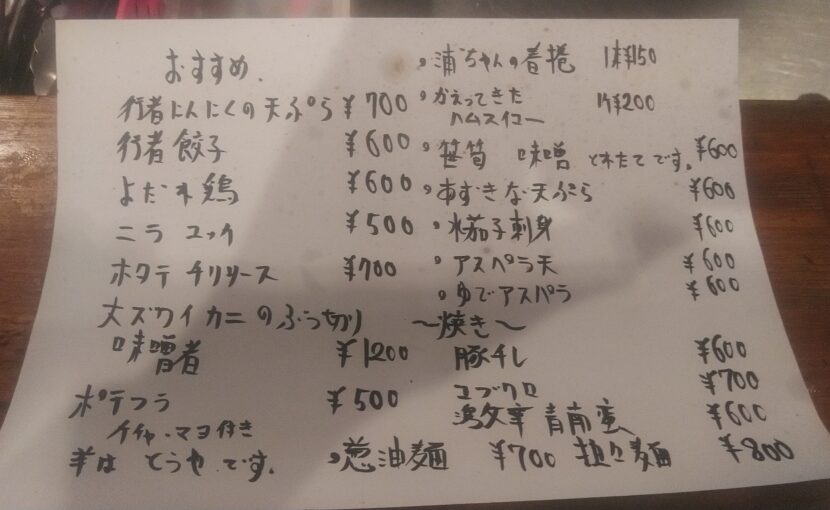 おすすめ.
行者にんにくの天ぷら ¥700
行者餃子 ¥600
よだれ鶏 ¥600
ニラ ユッケ ¥500
ホタテ チリソース ¥700
大ズワイカニのぶつ切り
味噌煮 ¥1200
ポテフラ ¥500
イチャ・マヨ付き
芋は とうや です。
浦ちゃんの春捲 1本¥150
かえってきた
ハムスイコー 1ケ¥200
笹筍 味噌 とれたてです。 ¥600
あずきな天ぷら ¥600
水茄子刺身 ¥600
アスパラ天 ¥600
ゆでアスパラ ¥600
〜焼き〜
豚チレ ¥600
コブクロ ¥700
青南蛮 ¥600
葱油麺 ¥700 担々麺 ¥800